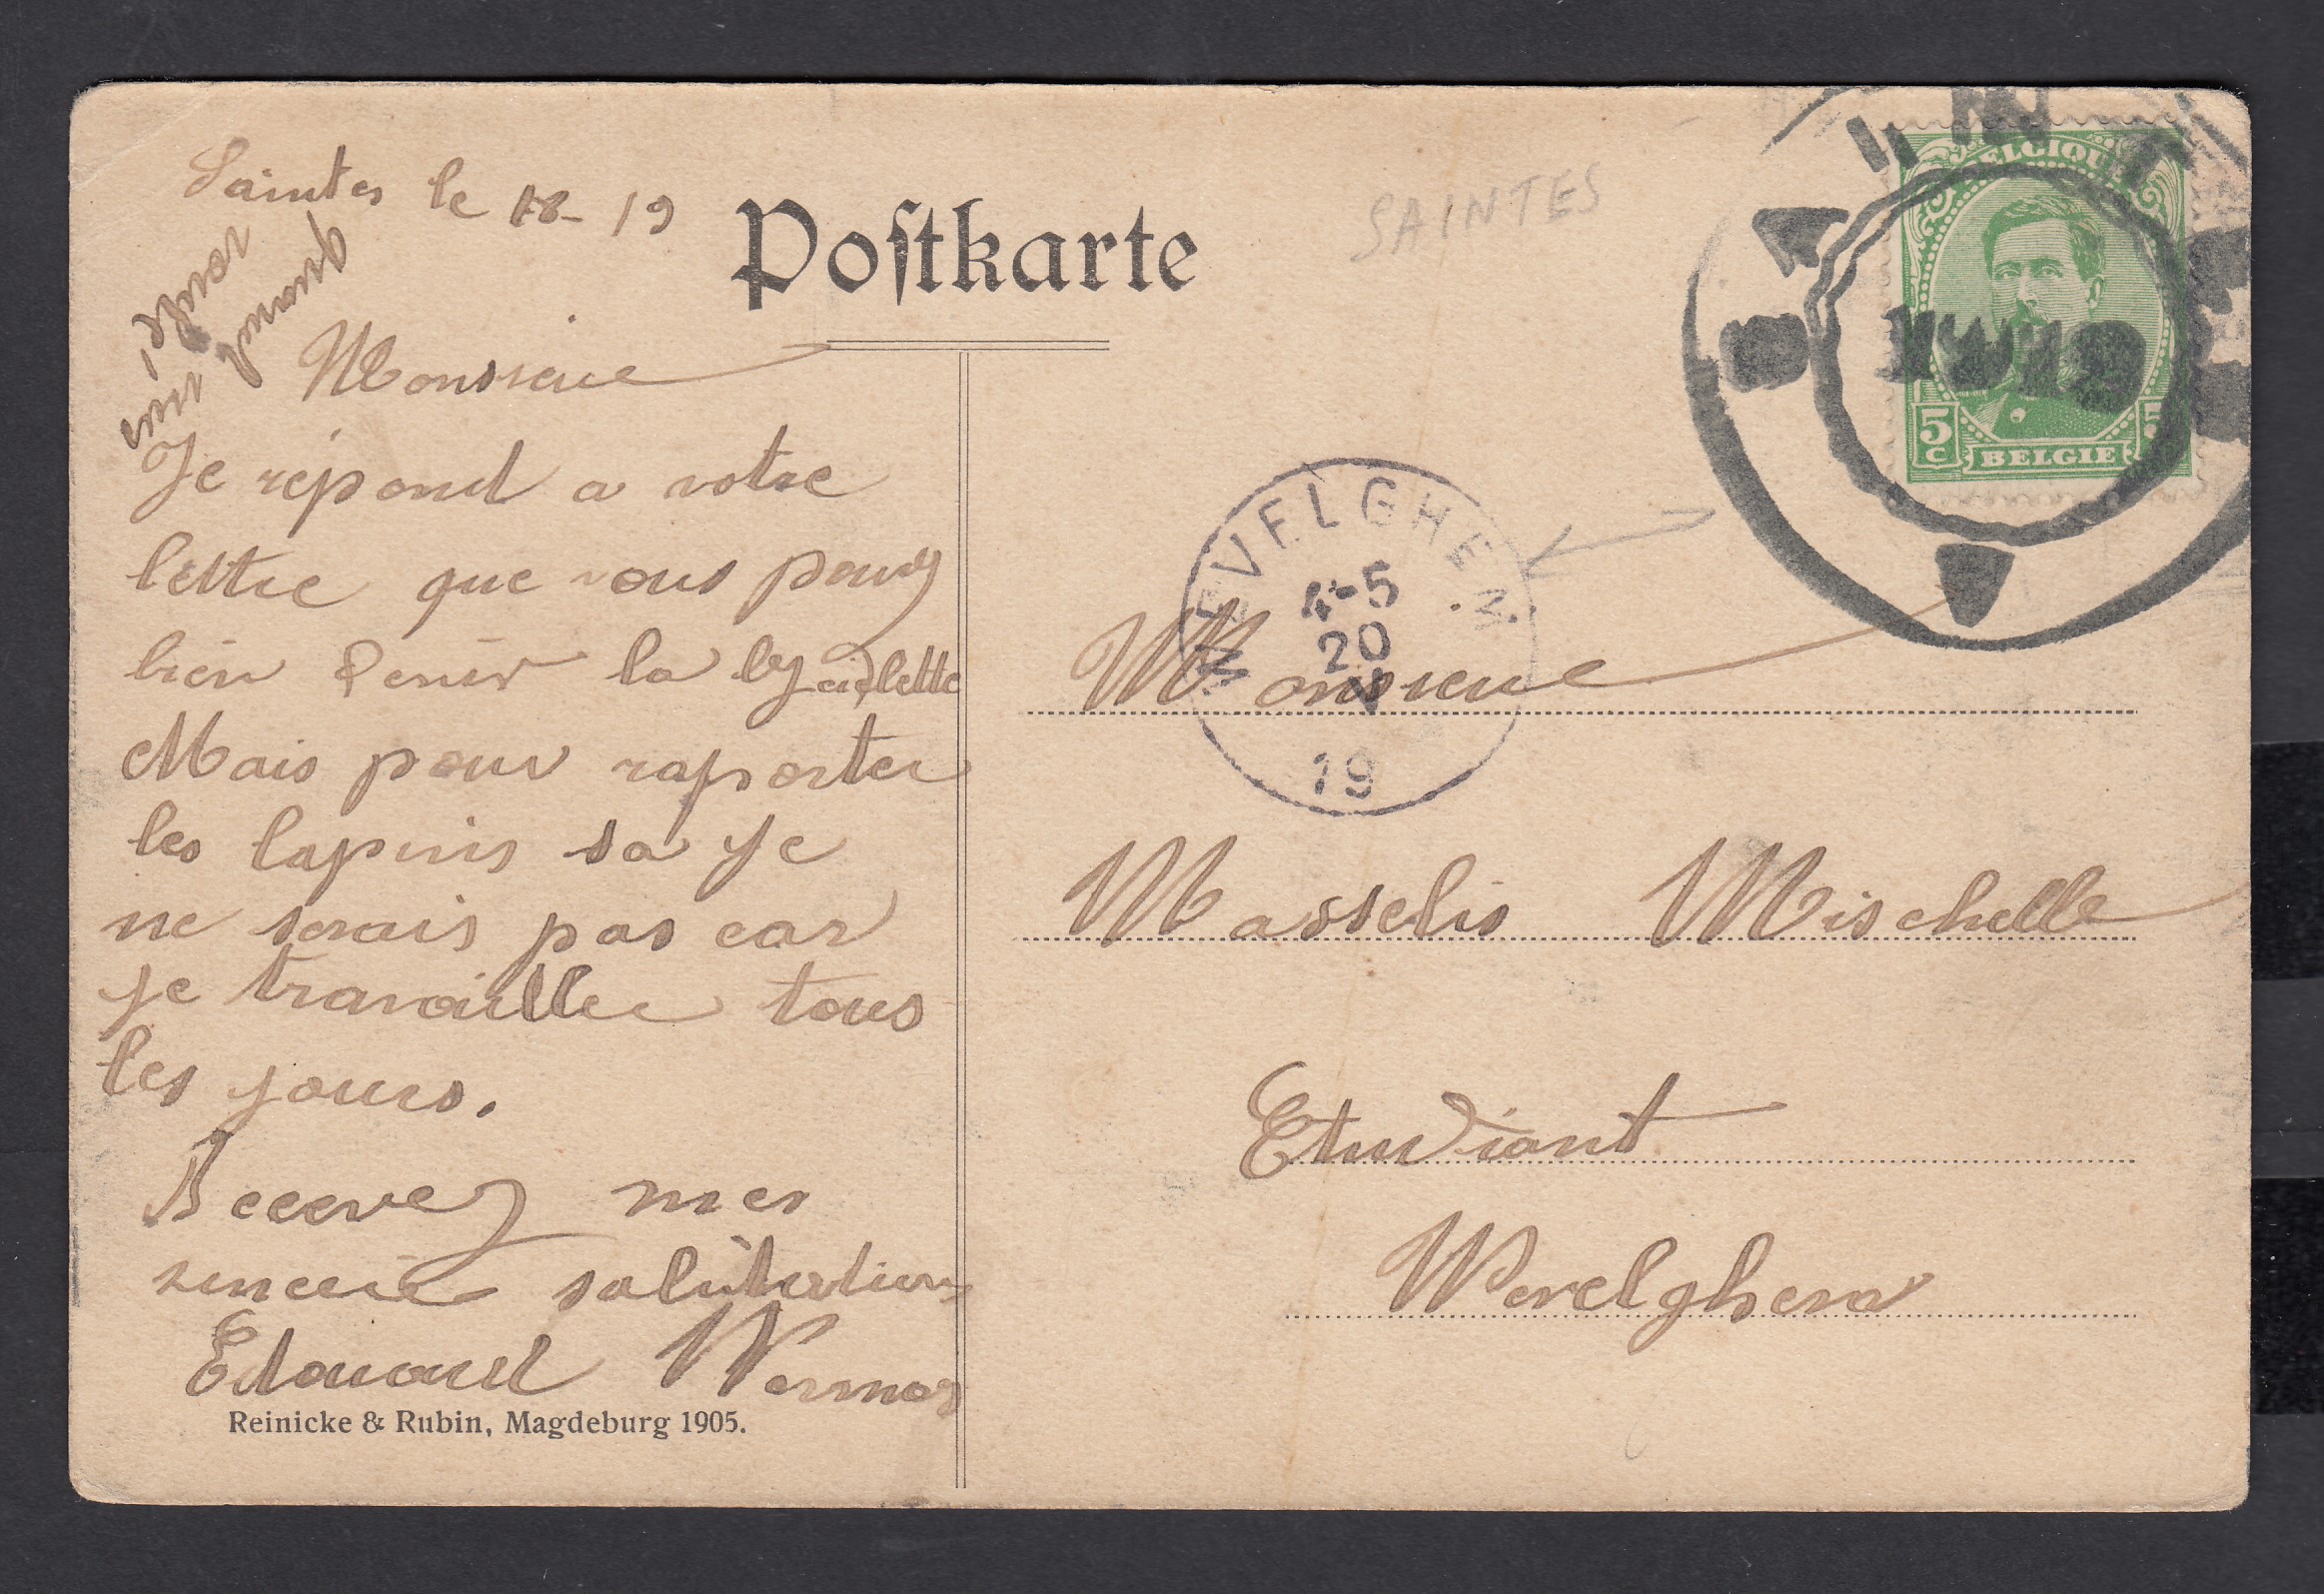 Saintes le 18-19
Postkarte
SAINTES
Monsieur
Je répond a votre
lettre que vous pouvez
bien venir la
Mais pour raporter
les lapins sa je
ne serais pas car
je travailler tous
les jours.
Recevez mes
sincère salutations
Edouard
Reinicke & Rubin, Magdeburg 1905.
BELGIQUE
5 c
5
BELGIE
1919
WEVELGHEM
4-5
20
V
19
Monsieur
Masselis Mischelle
Etudiant
Wevelghem